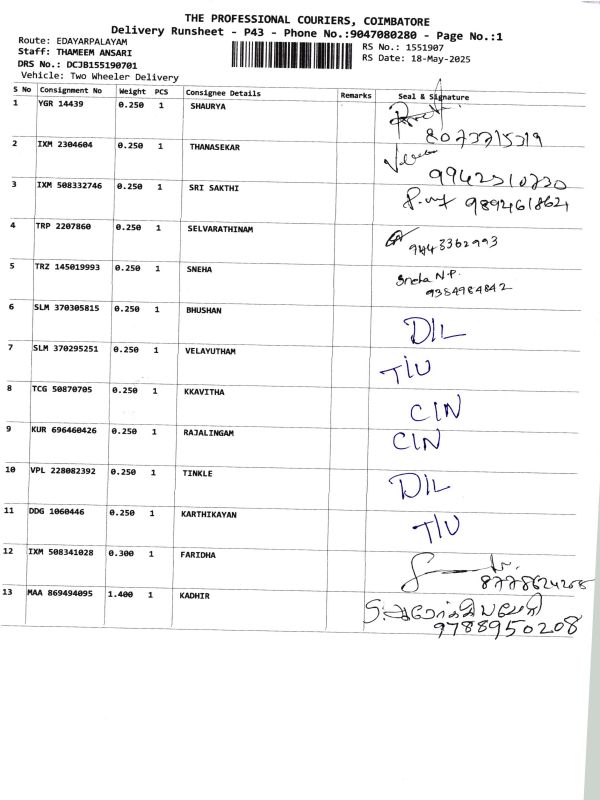 THE PROFESSIONAL COURIERS, COIMBATORE
Delivery Runsheet - P43 - Phone No.:9047080280 - Page No.:1
Route: EDAYARPALAYAM
Staff: THAMEEM ANSARI
RS No.: 1551907
DRS No.: DCJB155190701
RS Date: 18-May-2025
Vehicle: Two Wheeler Delivery
S No Consignment No Weight PCS Consignee Details Remarks Seal & Signature
1 YGR 14439 0.250 1 SHAURYA
8073715319
2 IXM 2304604 0.250 1 THANASEKAR
9942310730
3 IXM 508332746 0.250 1 SRI SAKTHI
9894618621
4 TRP 2207860 0.250 1 SELVARATHINAM
9443362993
5 TRZ 145019993 0.250 1 SNEHA Sneha N.P.
9384984842
6 SLM 370305815 0.250 1 BHUSHAN D/L
7 SLM 370295251 0.250 1 VELAYUTHAM T/U
8 TCG 50870705 0.250 1 KKAVITHA C/N
9 KUR 696460426 0.250 1 RAJALINGAM C/N
10 VPL 228082392 0.250 1 TINKLE D/L
11 DDG 1060446 0.250 1 KARTHIKAYAN T/U
12 IXM 508341028 0.300 1 FARIDHA
8778624268
13 MAA 869494095 1.400 1 KADHIR
9788950208